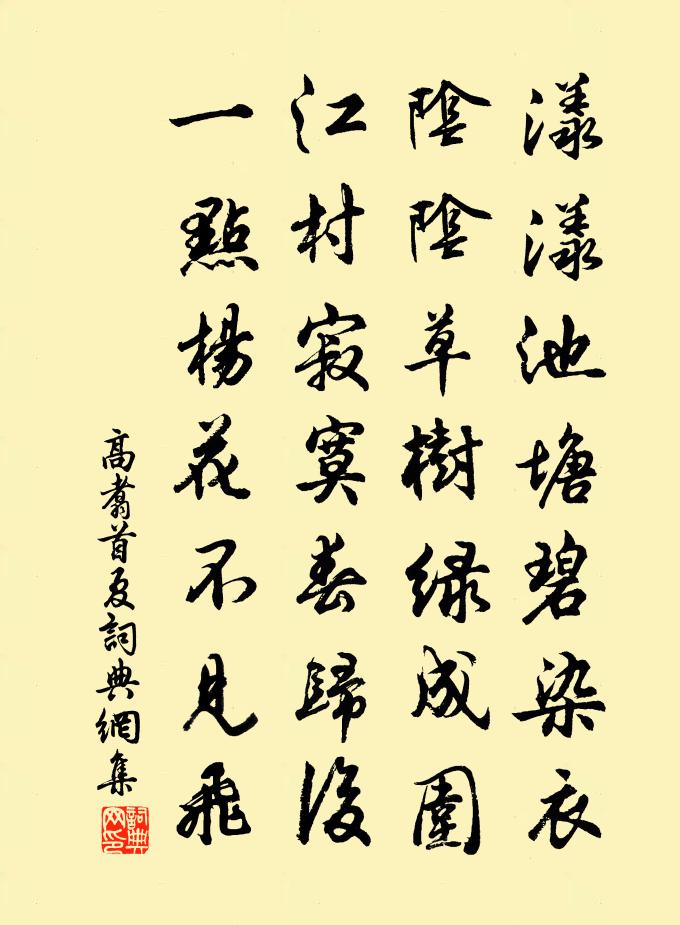 漾漾池塘碧染衣
陰陰草樹緑成圍
江村寂寞春歸後
一點楊花不見飛
高翥首夏詞典網集
詞典網印